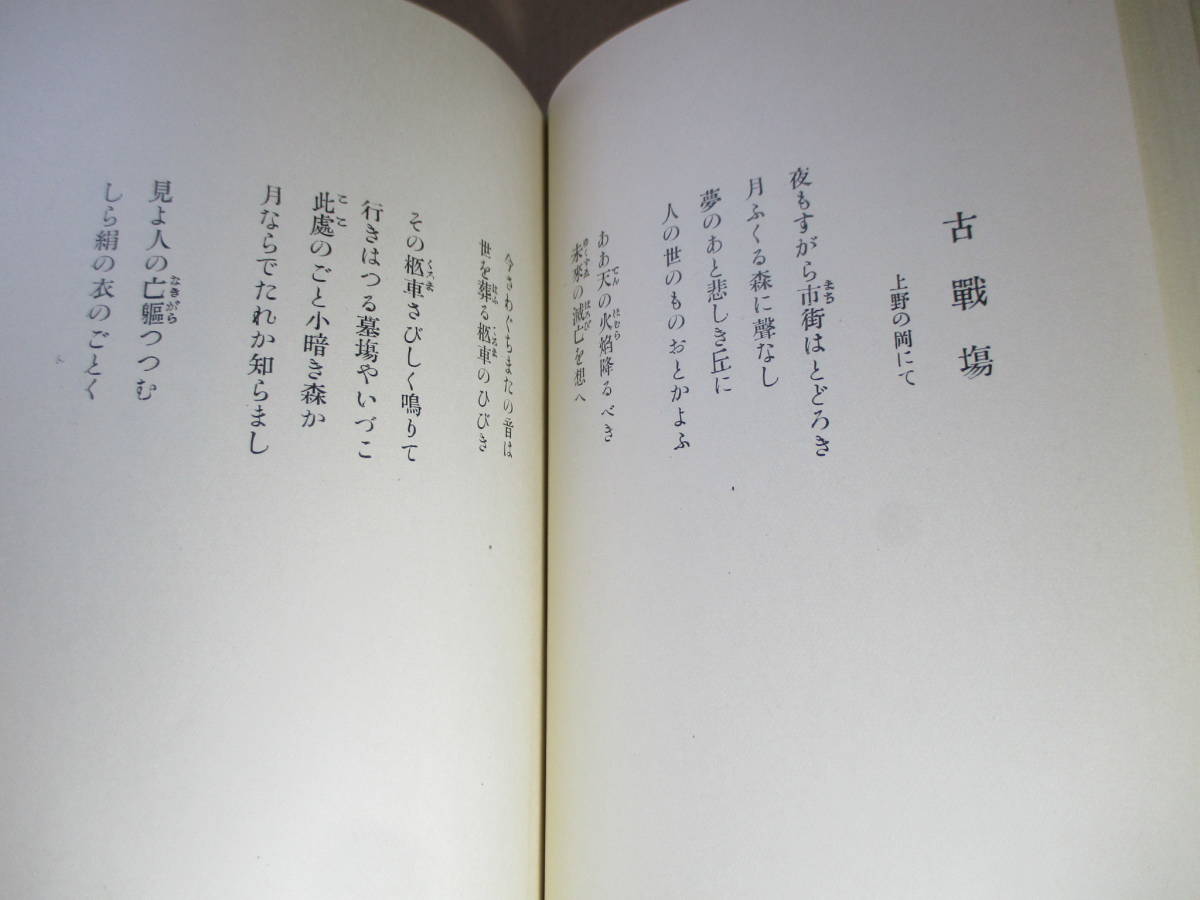 古戰場
上野の岡にて
夜もすがら市街はとどろき
まち
月ふくる森に聲なし
夢のあと悲しき丘に
人の世のもののおとかよふ
ああ天の火焰降るべき
てん
ほむら
未來の滅亡を想へ
ほろび
今さわぐちまたの音は
世を葬る柩車のひびき
はふ
くるま
その柩車さびしく鳴りて
くるま
行きはつる墓場やいづこ
此處のごと小暗き森か
ここ
月ならでたれか知らまし
見よ人の亡軀つつむ
なきがら
しら絹の衣のごとく